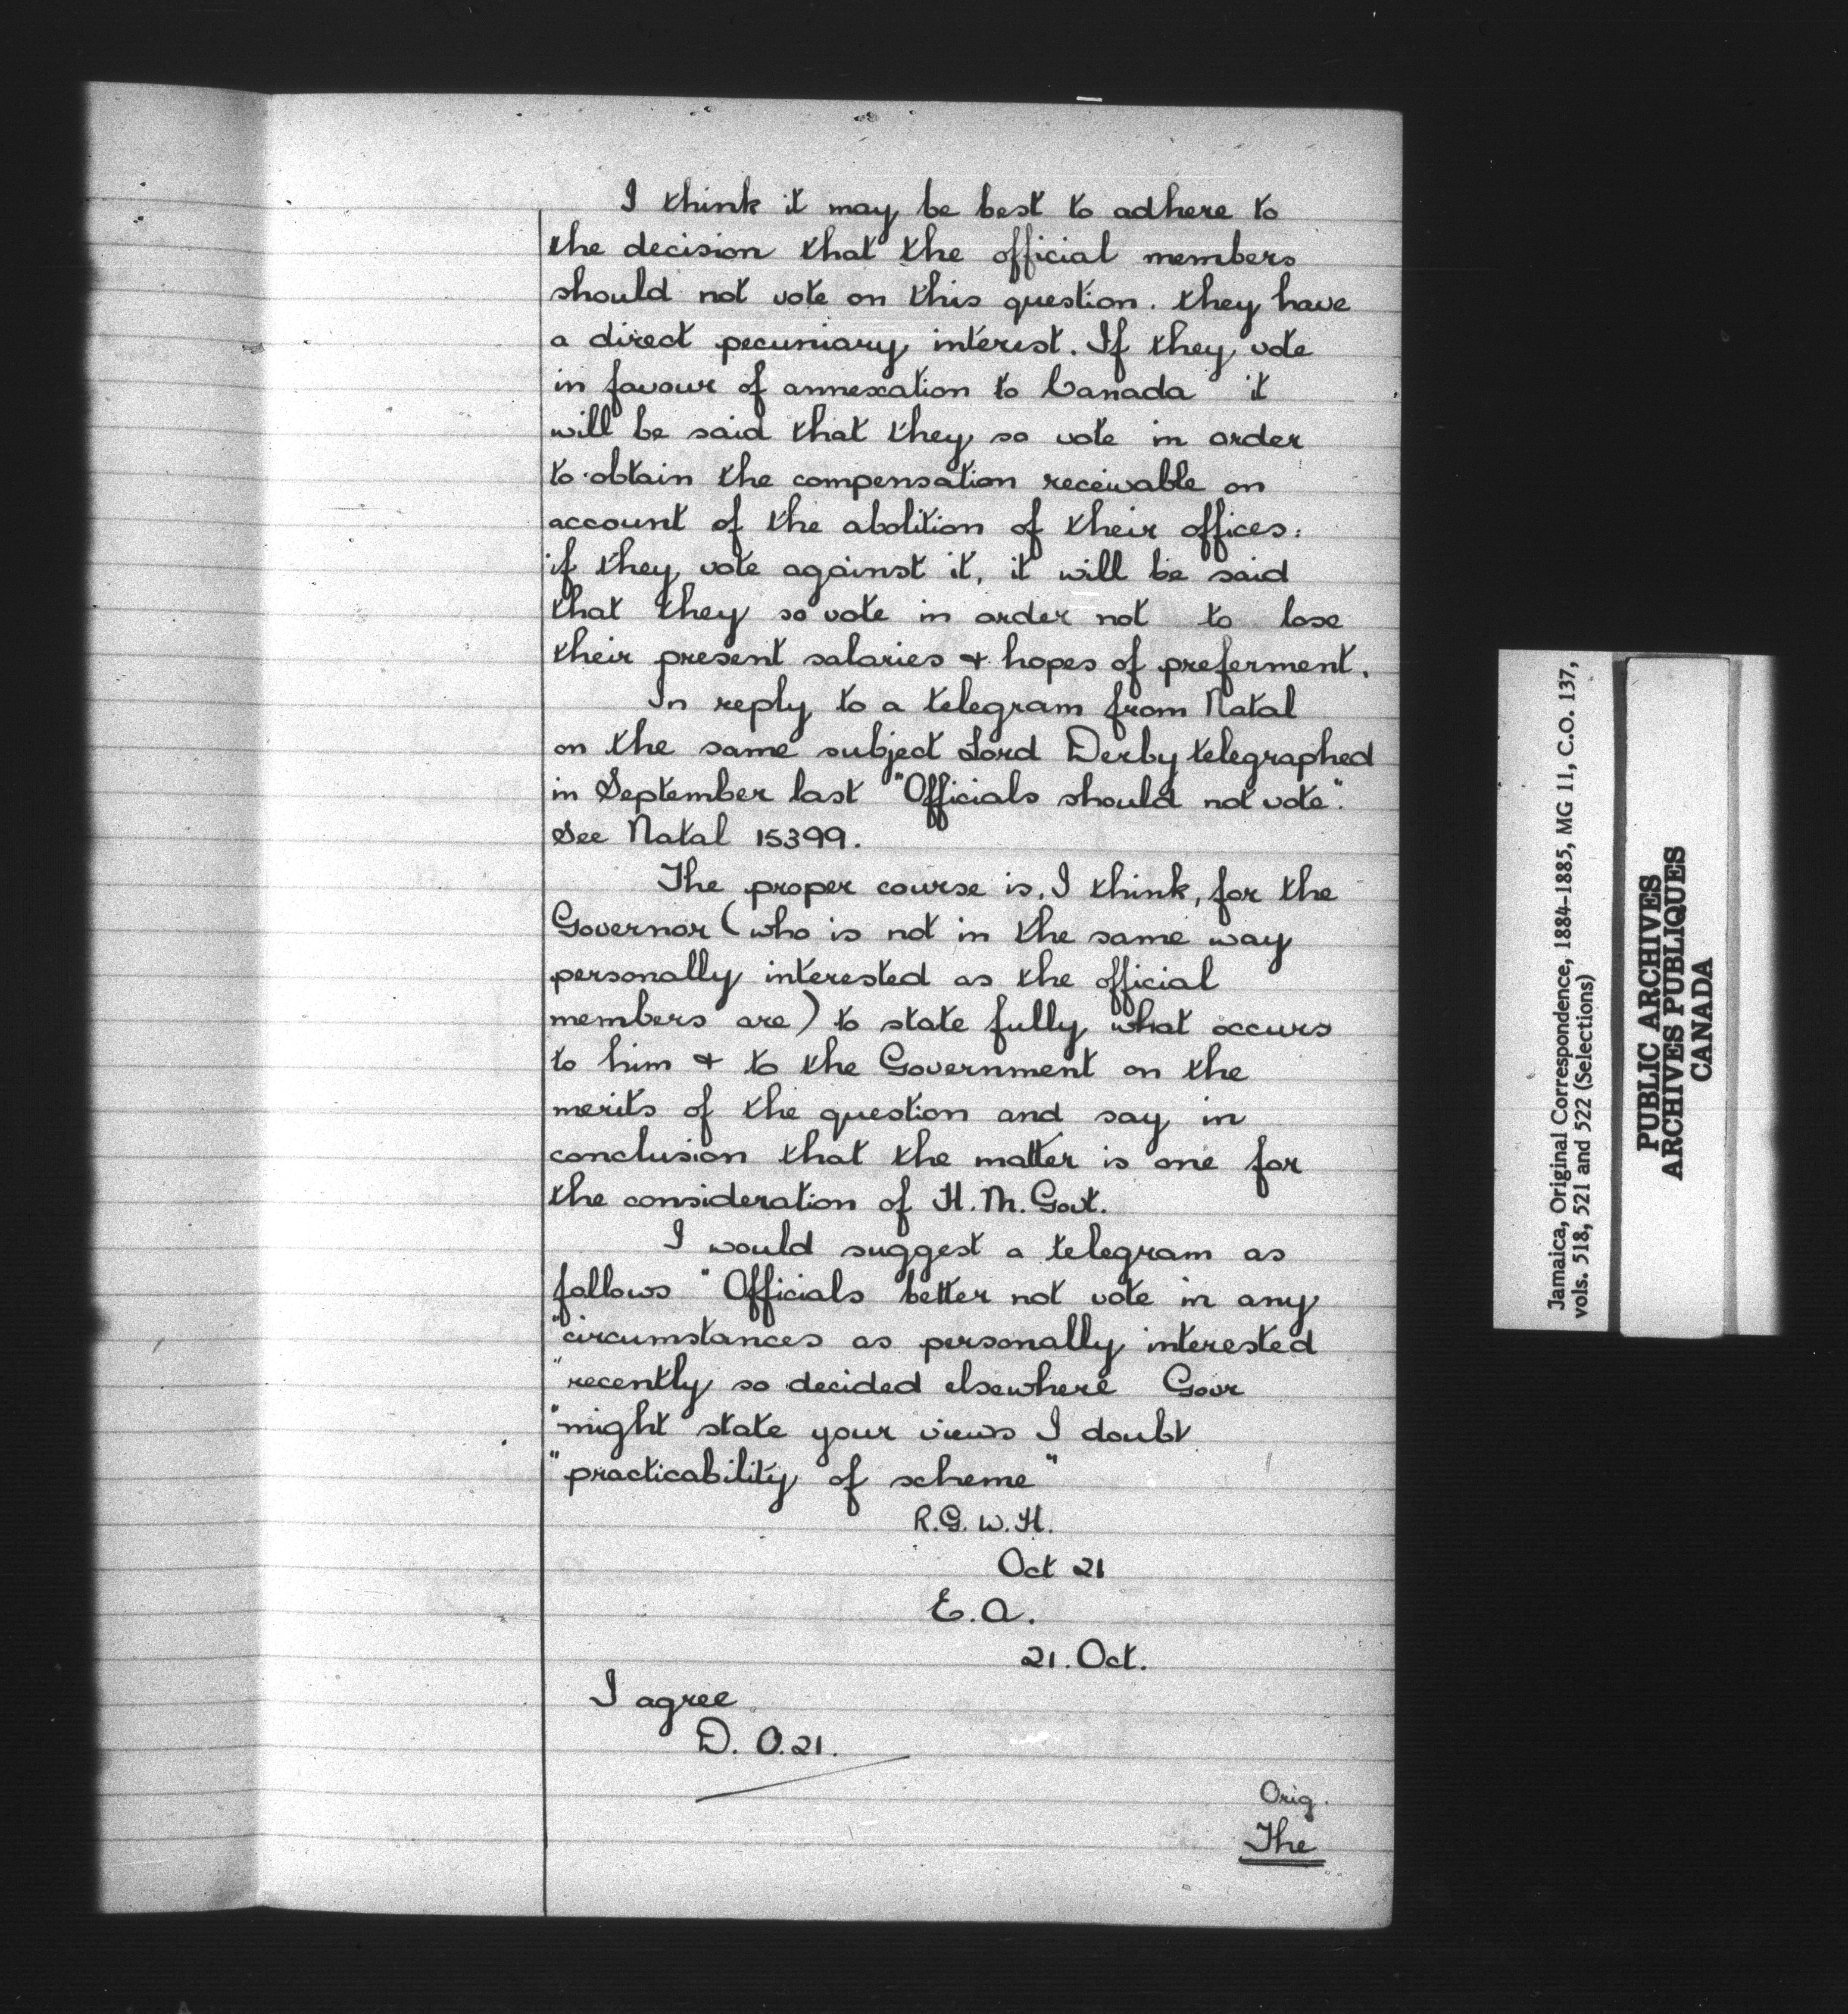 I think it may be best to adhere to
the decision that the official members
should not vote on this question. they have
a direct pecuniary interest. If they vote
in favour of annexation to Canada it
will be said that they so vote in order
to obtain the compensation receivable on
account of the abolition of their offices:
if they vote against it, it will be said
that they so vote in order not to lose
their present salaries & hopes of preferment.
In reply to a telegram from Natal
on the same subject Lord Derby telegraphed
in September last "Officials should not vote".
See Natal 15399.
The proper course is, I think, for the
Governor (who is not in the same way
personally interested as the official
members are) to state fully what occurs
to him & to the Government on the
merits of the question and say in
conclusion that the matter is one for
the consideration of H.M. Govt.
I would suggest a telegram as
follows "Officials better not vote in any
"circumstances as personally interested
"recently so decided elsewhere Govr
"might state your views I doubt
"practicability of scheme"
R.G.W.H.
Oct 21
E.A.
21. Oct.
I agree
D. O.21.
Orig.
The
Jamaica, Original Correspondence, 1884-1885, MG 11, C.O. 137,
vols. 518, 521 and 522 (Selections)
PUBLIC ARCHIVES
ARCHIVES PUBLIQUES
CANADA